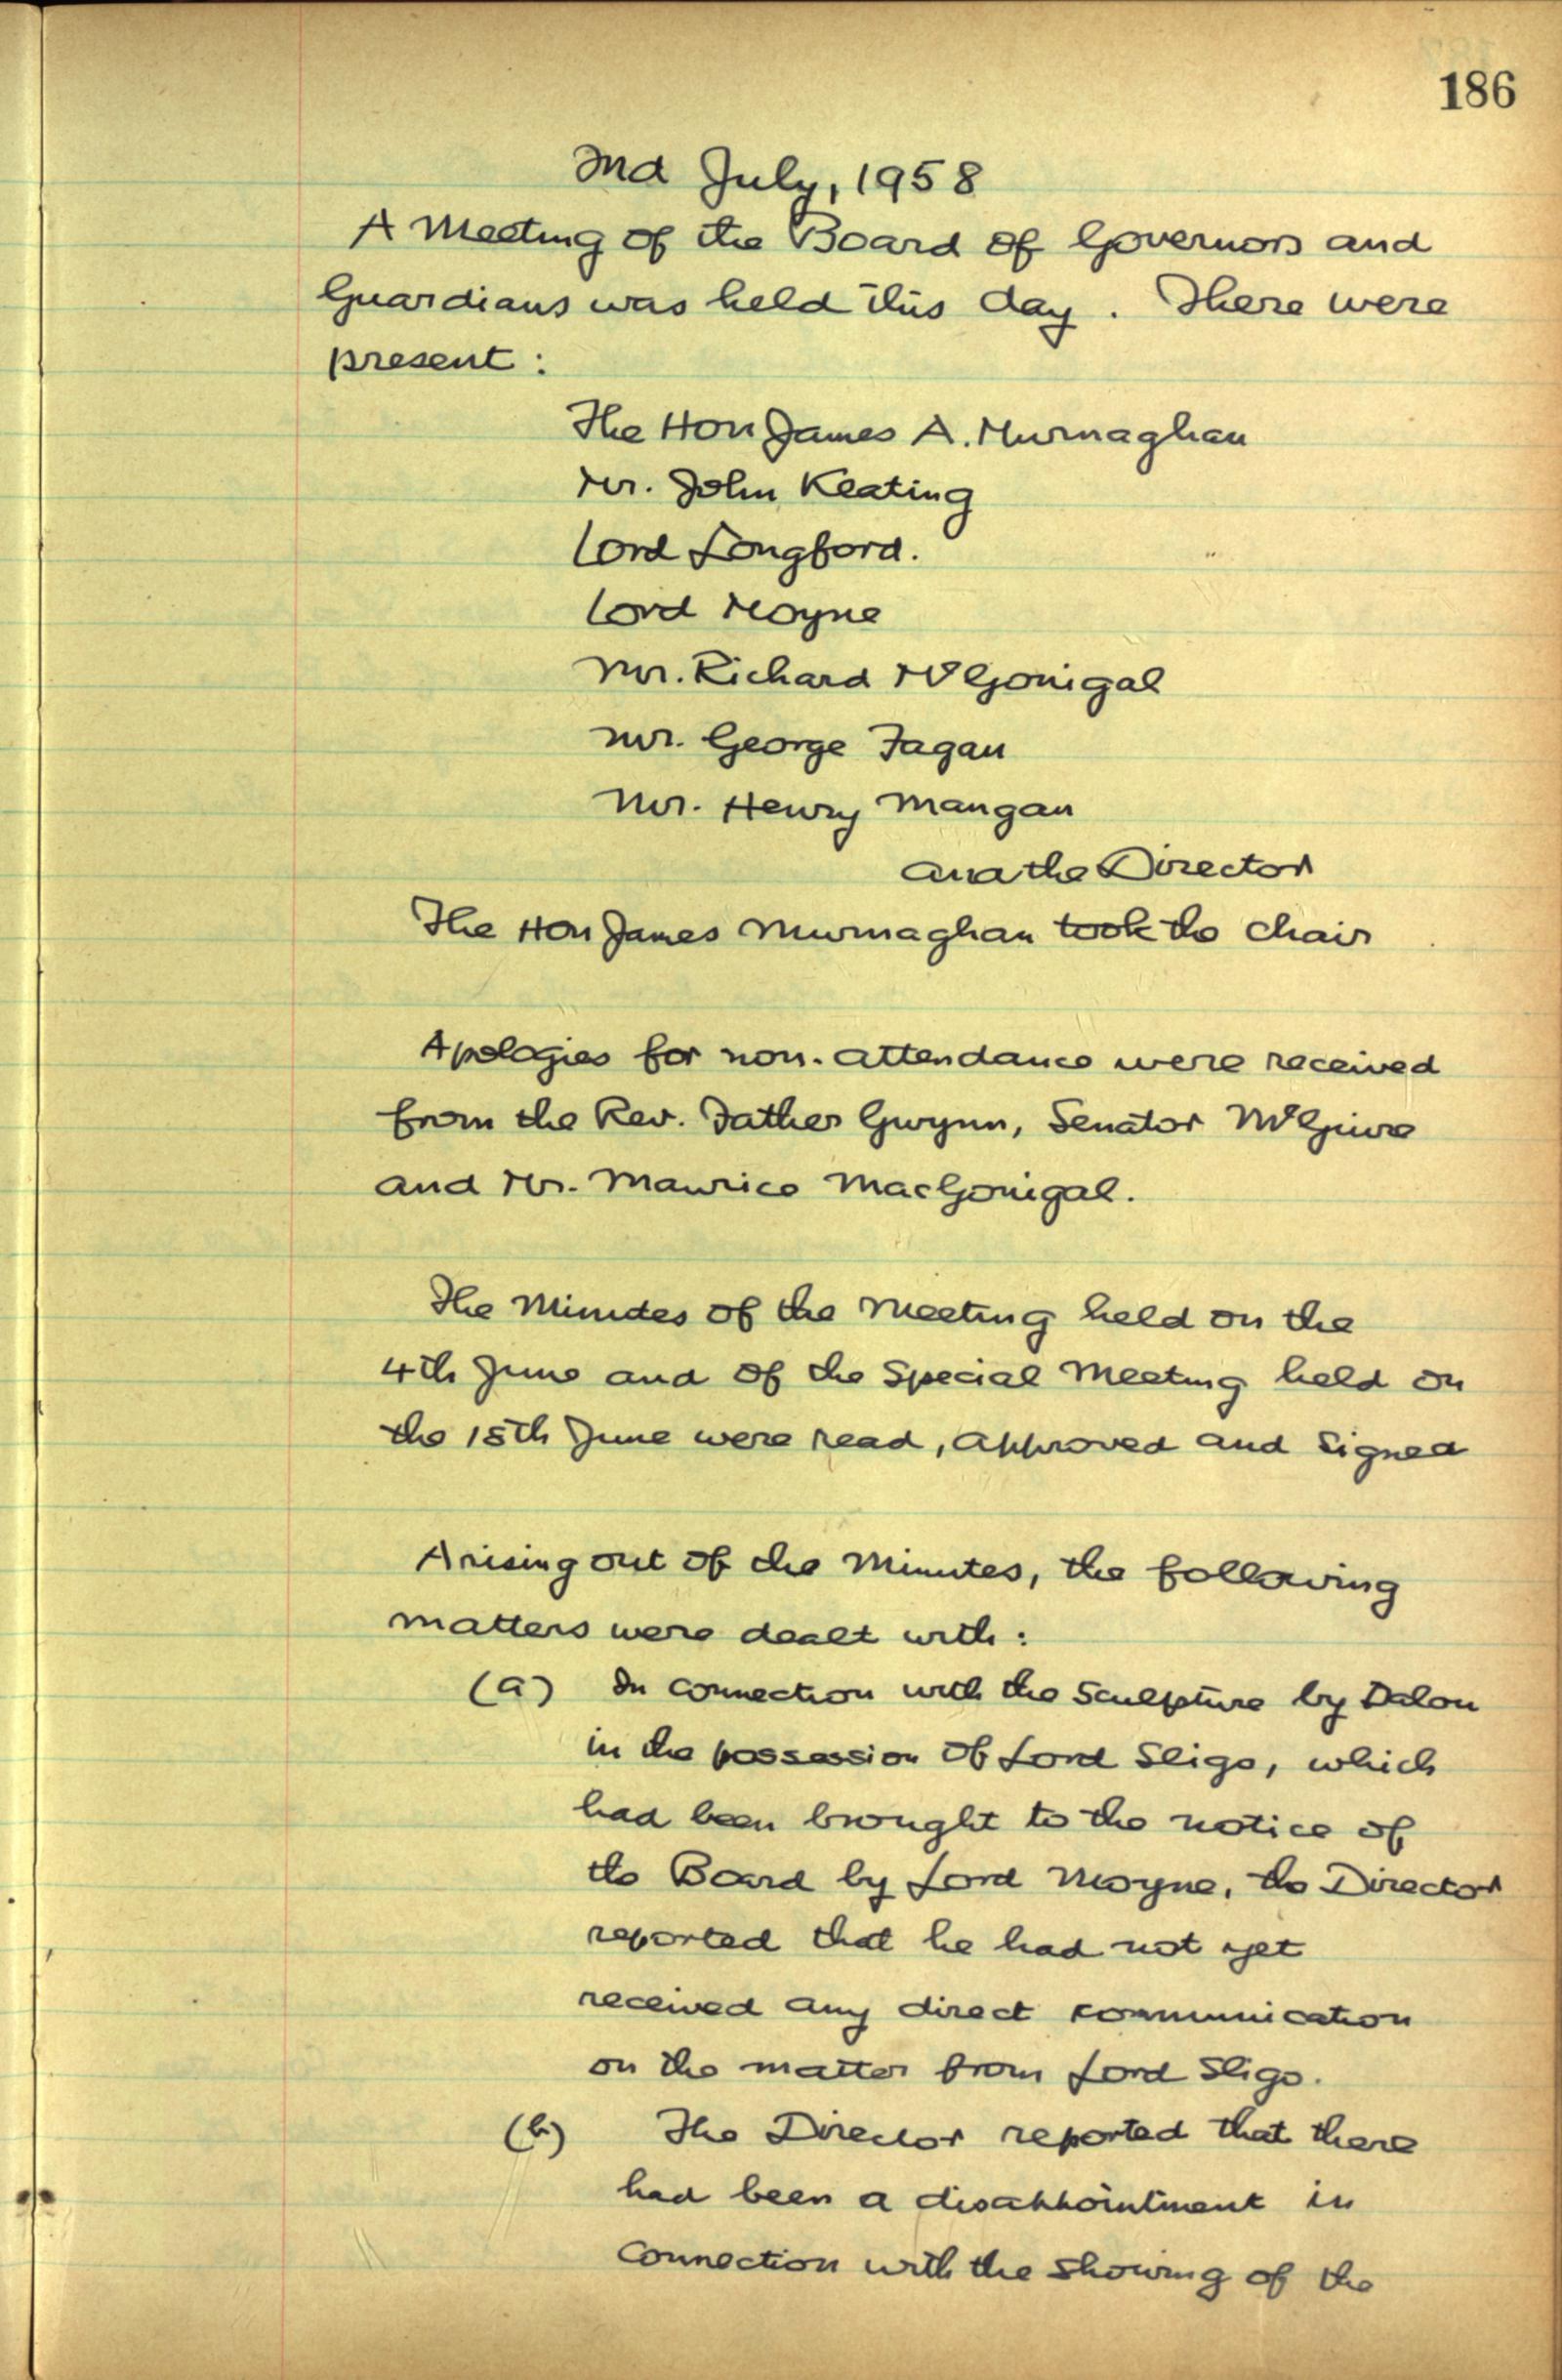 186
2nd July, 1958
A Meeting of the Board of Governors and
Guardians was held this day. There were
present:
The Hon James A. Murnaghan
Mr. John Keating
Lord Longford.
Lord Moyne
Mr. Richard McGonigal
Mr. George Fagan
Mr. Henry Mangan
and the Director
The Hon James Murnaghan took the chair
Apologies for non-attendance were received
from the Rev. Father Gwynn, Senator McGuire
and Mr. Maurice MacGonigal.
The Minutes of the Meeting held on the
4th June and of the Special Meeting held on
the 18th June were read, approved and signed
Arising out of the Minutes, the following
matters were dealt with:
(a) In connection with the Sculpture by Dalou
in the possession of Lord Sligo, which
had been brought to the notice of
the Board by Lord Moyne, the Director
reported that he had not yet
received any direct communication
on the matter from Lord Sligo.
(b) The Director reported that there
had been a disappointment in
connection with the showing of the